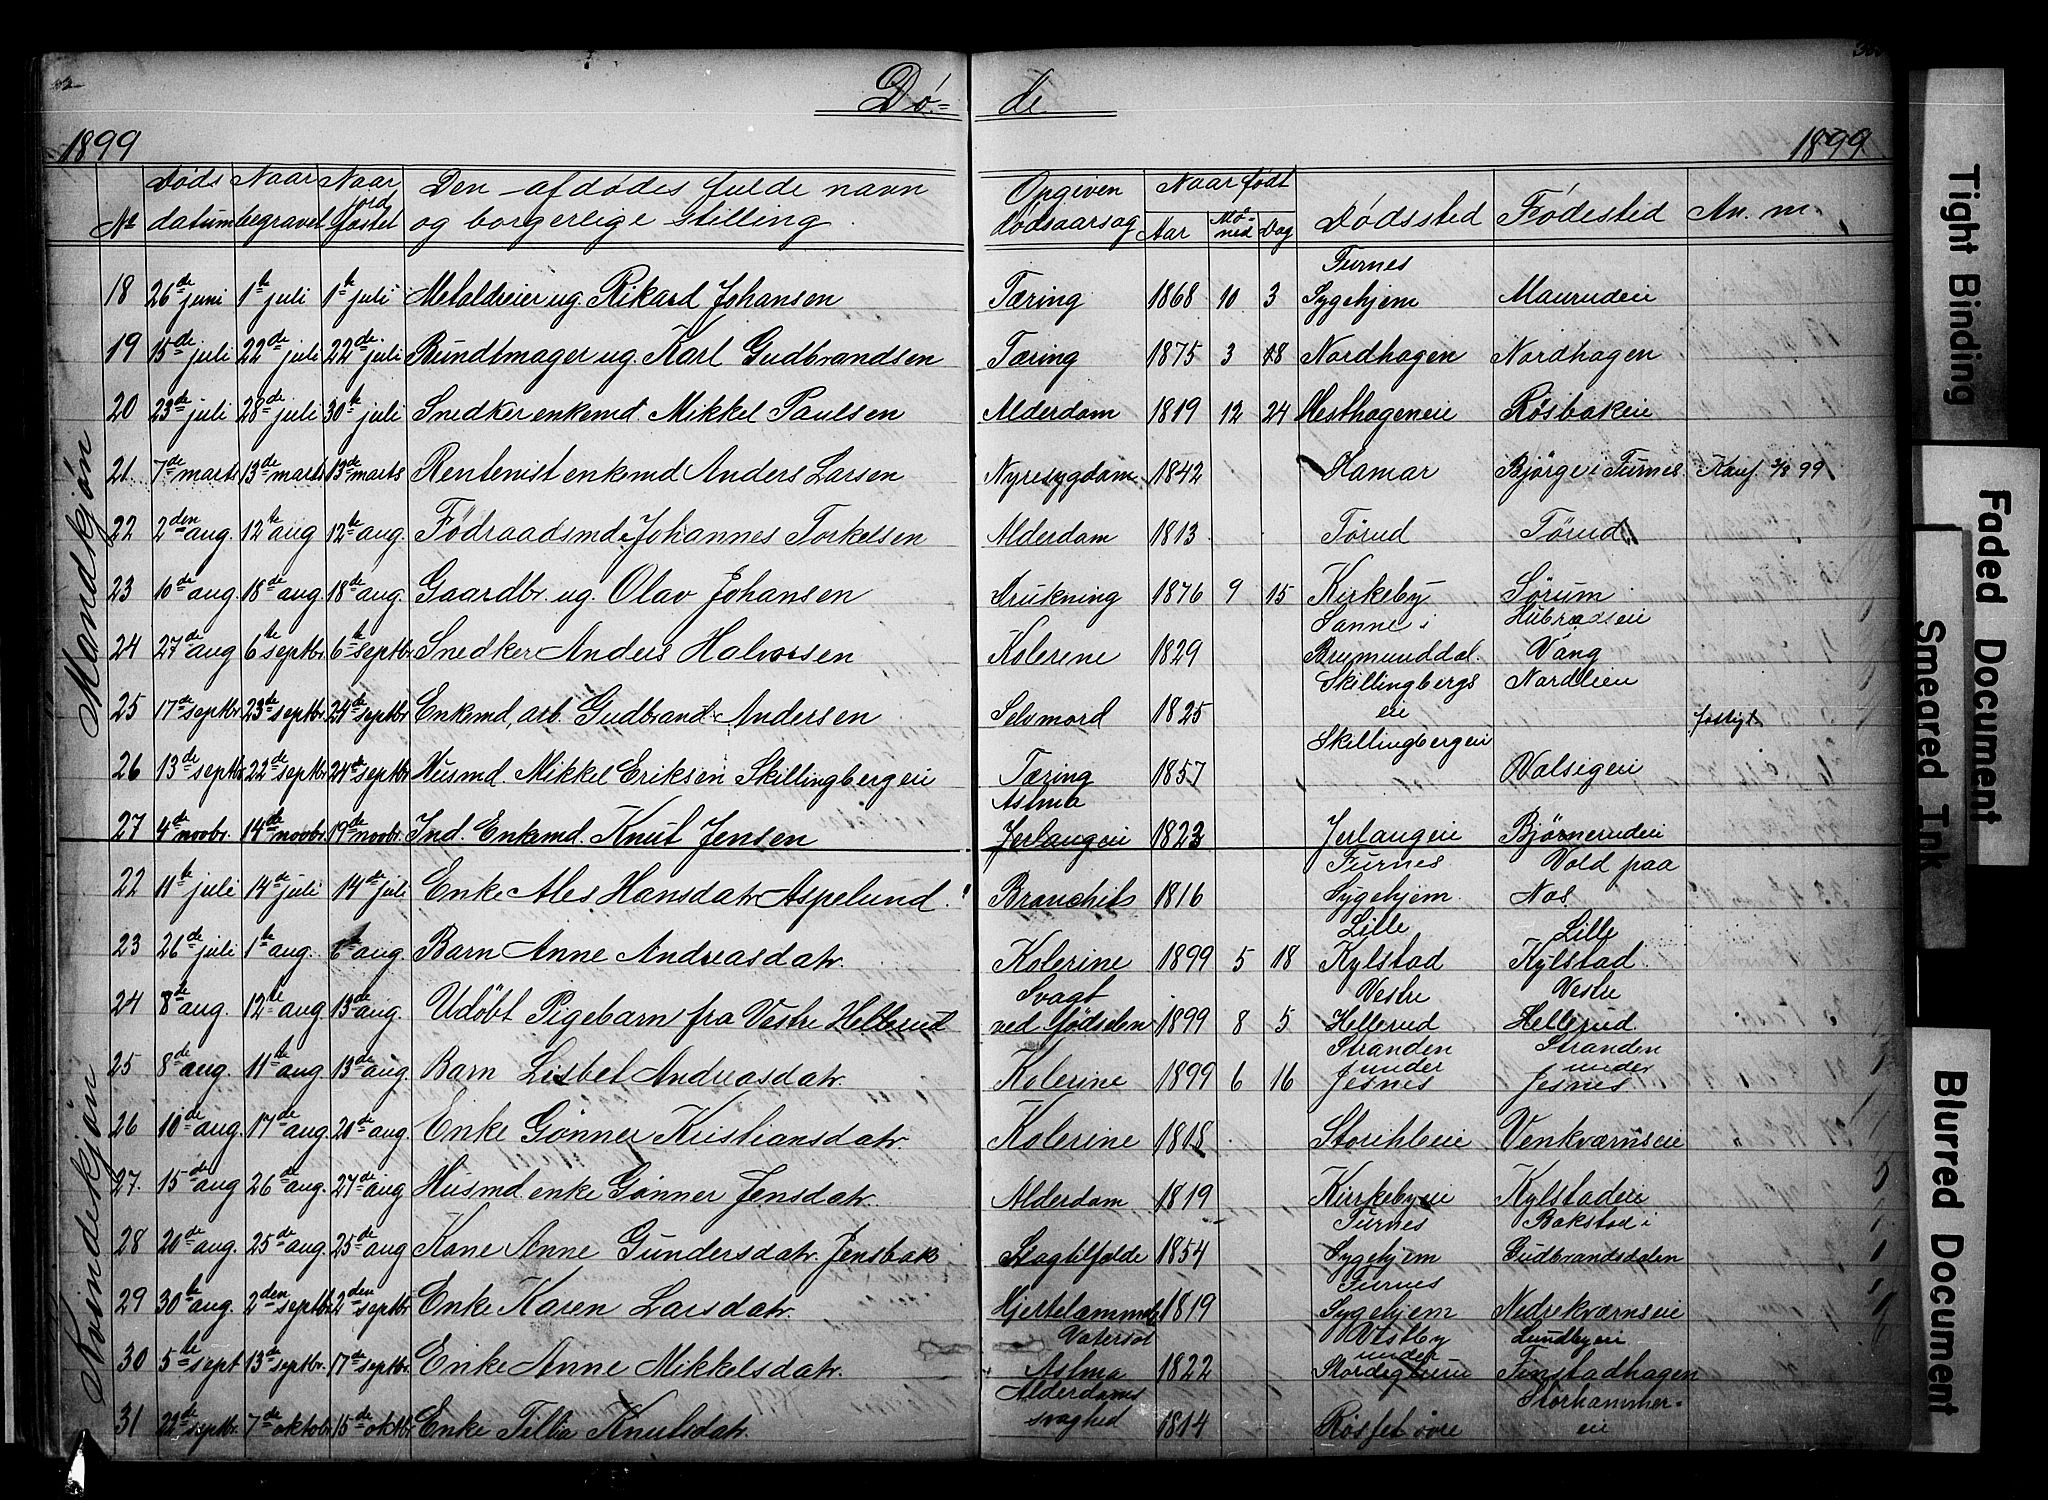 Dø= de
1899 1899
Mandkjøn
Kvindekjøn
№ Døds datum Naar begravet Naar jord fæstet Den afdødes fulde navn og borgerlige stilling Opgiven dødsaarsag Naar født Aar Maaned Dag Dødssted Fødested An. m.
18 26de juni 1te juli 1te juli Metaldreier ug. Rikard Johansen Tæring 1868 10 3 Furnes Sygehjem Maurudeie
19 15de juli 22de juli 22de juli Bundtmager ug. Karl Gudbrandsen Tæring 1875 3 18 Nordhagen Nordhagen
20 23de juli 28de juli 30te juli Snedker enkemd. Mikkel Paulsen Alderdom 1819 12 24 Hesthageneie Røsbakeie
21 7de marts 13de marts 13de marts Rentenist enkmd Anders Larsen Nyresygdom 1842 Hamar Bjørge i Furnes
22 2den aug. 12te aug 12te aug. Fødraadsmd Johannes Torkelsen Alderdom 1813 Tørud Tørud
23 10de aug. 18de aug. 18de aug. Gaardbr. ug. Olav Johansen Drukning 1876 9 15 Kirkeby Sørum
24 27de aug 6te septbr. 6te septbr. Snedker Anders Halvorsen Kolerine 1829 Sanne i Brumunddal. Hubrædseie Vang
25 17de septbr 23de septbr 24de septbr. Enkemd, arb. Gudbrand Andersen Selvmord 1825 Skillingbergs eie Nordlien
26 13de septbr 22de septbr 24de septbr. Husmd. Mikkel Eriksen Skillingbergeie Tæring 1857 Skillingbergeie Valsigeie
27 4de novbr. 14de novbr. 19de novbr. Ind. Enkmd. Knut Jensen Astma Jerlangeie 1823 Jerlangeie Bjørnerudeie
22 11te juli 14de juli 14de juli Enke Ales Hansdatr Aspelund. Bronchit 1816 Furnes Sygehjem Vold paa Nes
23 26de juli 1te aug. 6te aug. Barn Anne Andreasdatr. Kolerine 1899 5 18 Lille Kylstad Lille Kylstad
24 8de aug. 12te aug 13de aug. Udøbt Pigebarn fra Vestre Hellerud Svagt ved fødselen 1899 8 5 Vestre Hellerud Vestre Hellerud.
25 8de aug. 11te aug 13de aug. Barn Lisbet Andreasdatr. Kolerine 1899 6 16 Stranden under Jesnes Stranden under Jesnes
26 10de aug. 17de aug. 20de aug. Enke Gønner Kristiansdatr. Kolerine 1818 Storihleie Venkværnseie
27. 15de aug 26de aug. 27de aug Husmd. enke Gønner Jensdatr. Alderdom 1819 Kirkebyeie Kylstadeie
28 20de aug. 25de aug. 25de aug Kone Anne Gundersdatr. Jensbak Slagtilfælde 1854 Furnes Sygehjem Bakstad i Gudbrandsdalen
29 30te aug. 2den septbr. 2den septbr Enke Karen Larsdatr. Hjertelammelse 1819 Furnes Sygehjem Nedrekværnseie
30 5te sept 13de septbr. 17de septbr. Enke Anne Mikkelsdatr. Vatersot Astma 1822 Vestby under Lundbyeie Finstadhagen
31 22de septbr. 7de oktobr. 15de oktbr. Enke Tillia Knutsdatr. Alderdoms svaghed 1814 Røsset øvre Storhammer- eie
Tight Binding
Faded Document
Smeared Ink
Blurred Document